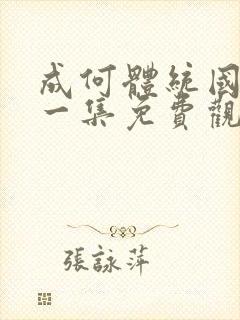 成何體統國
一集免費觀
張詠萍